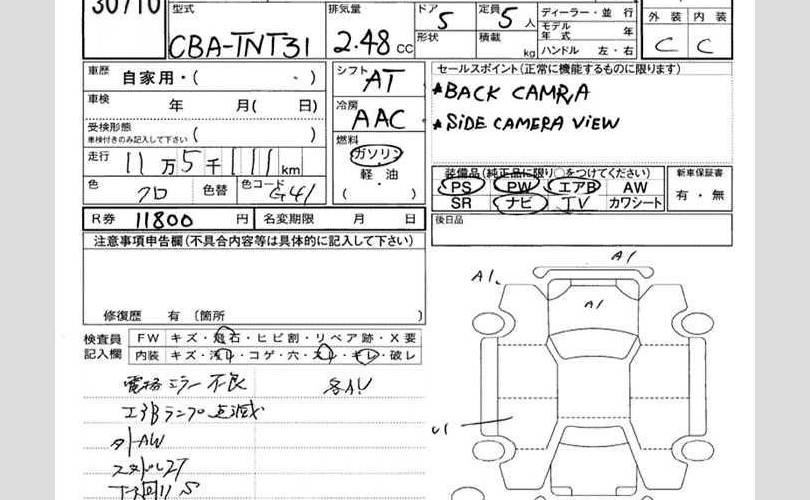 30/10
型式
CBA-TNT31
排気量
2.48 CC
ドア 5
形状
定員 5 人
積載 kg
ディーラー・並 行
モデル年式 年
ハンドル 左・右
外 装 内 装
C C
車歴 自家用・( )
車検 年 月( 日)
受検形態
車検付きのみ記入して下さい ( )
走行 11 万 5 千 111 km
色 クロ 色替 色コード G41
シフト AT
冷房
AAC
燃料
ガソリン
・
軽・油
( )
セールスポイント(正常に機能するものに限ります)
*BACK CAMRA
*SIDE CAMERA VIEW
装備品(純正品に限り○をつけてください)
PS PW エアB AW
SR ナビ TV カワシート
新車保証書
有・無
R券 11800 円 名変期限 月 日
後日品
注意事項申告欄(不具合内容等は具体的に記入して下さい)
修復歴 有 〔箇所 〕
検査員
記入欄
FW キズ・飛石・ヒビ割・リペア跡・X要
内装 キズ・汚レ・コゲ・穴・スレ・キレ・破レ
電格ミラー不良
エアBランプ点滅
外AW
スタッドレス
A1
A1
A1
U1